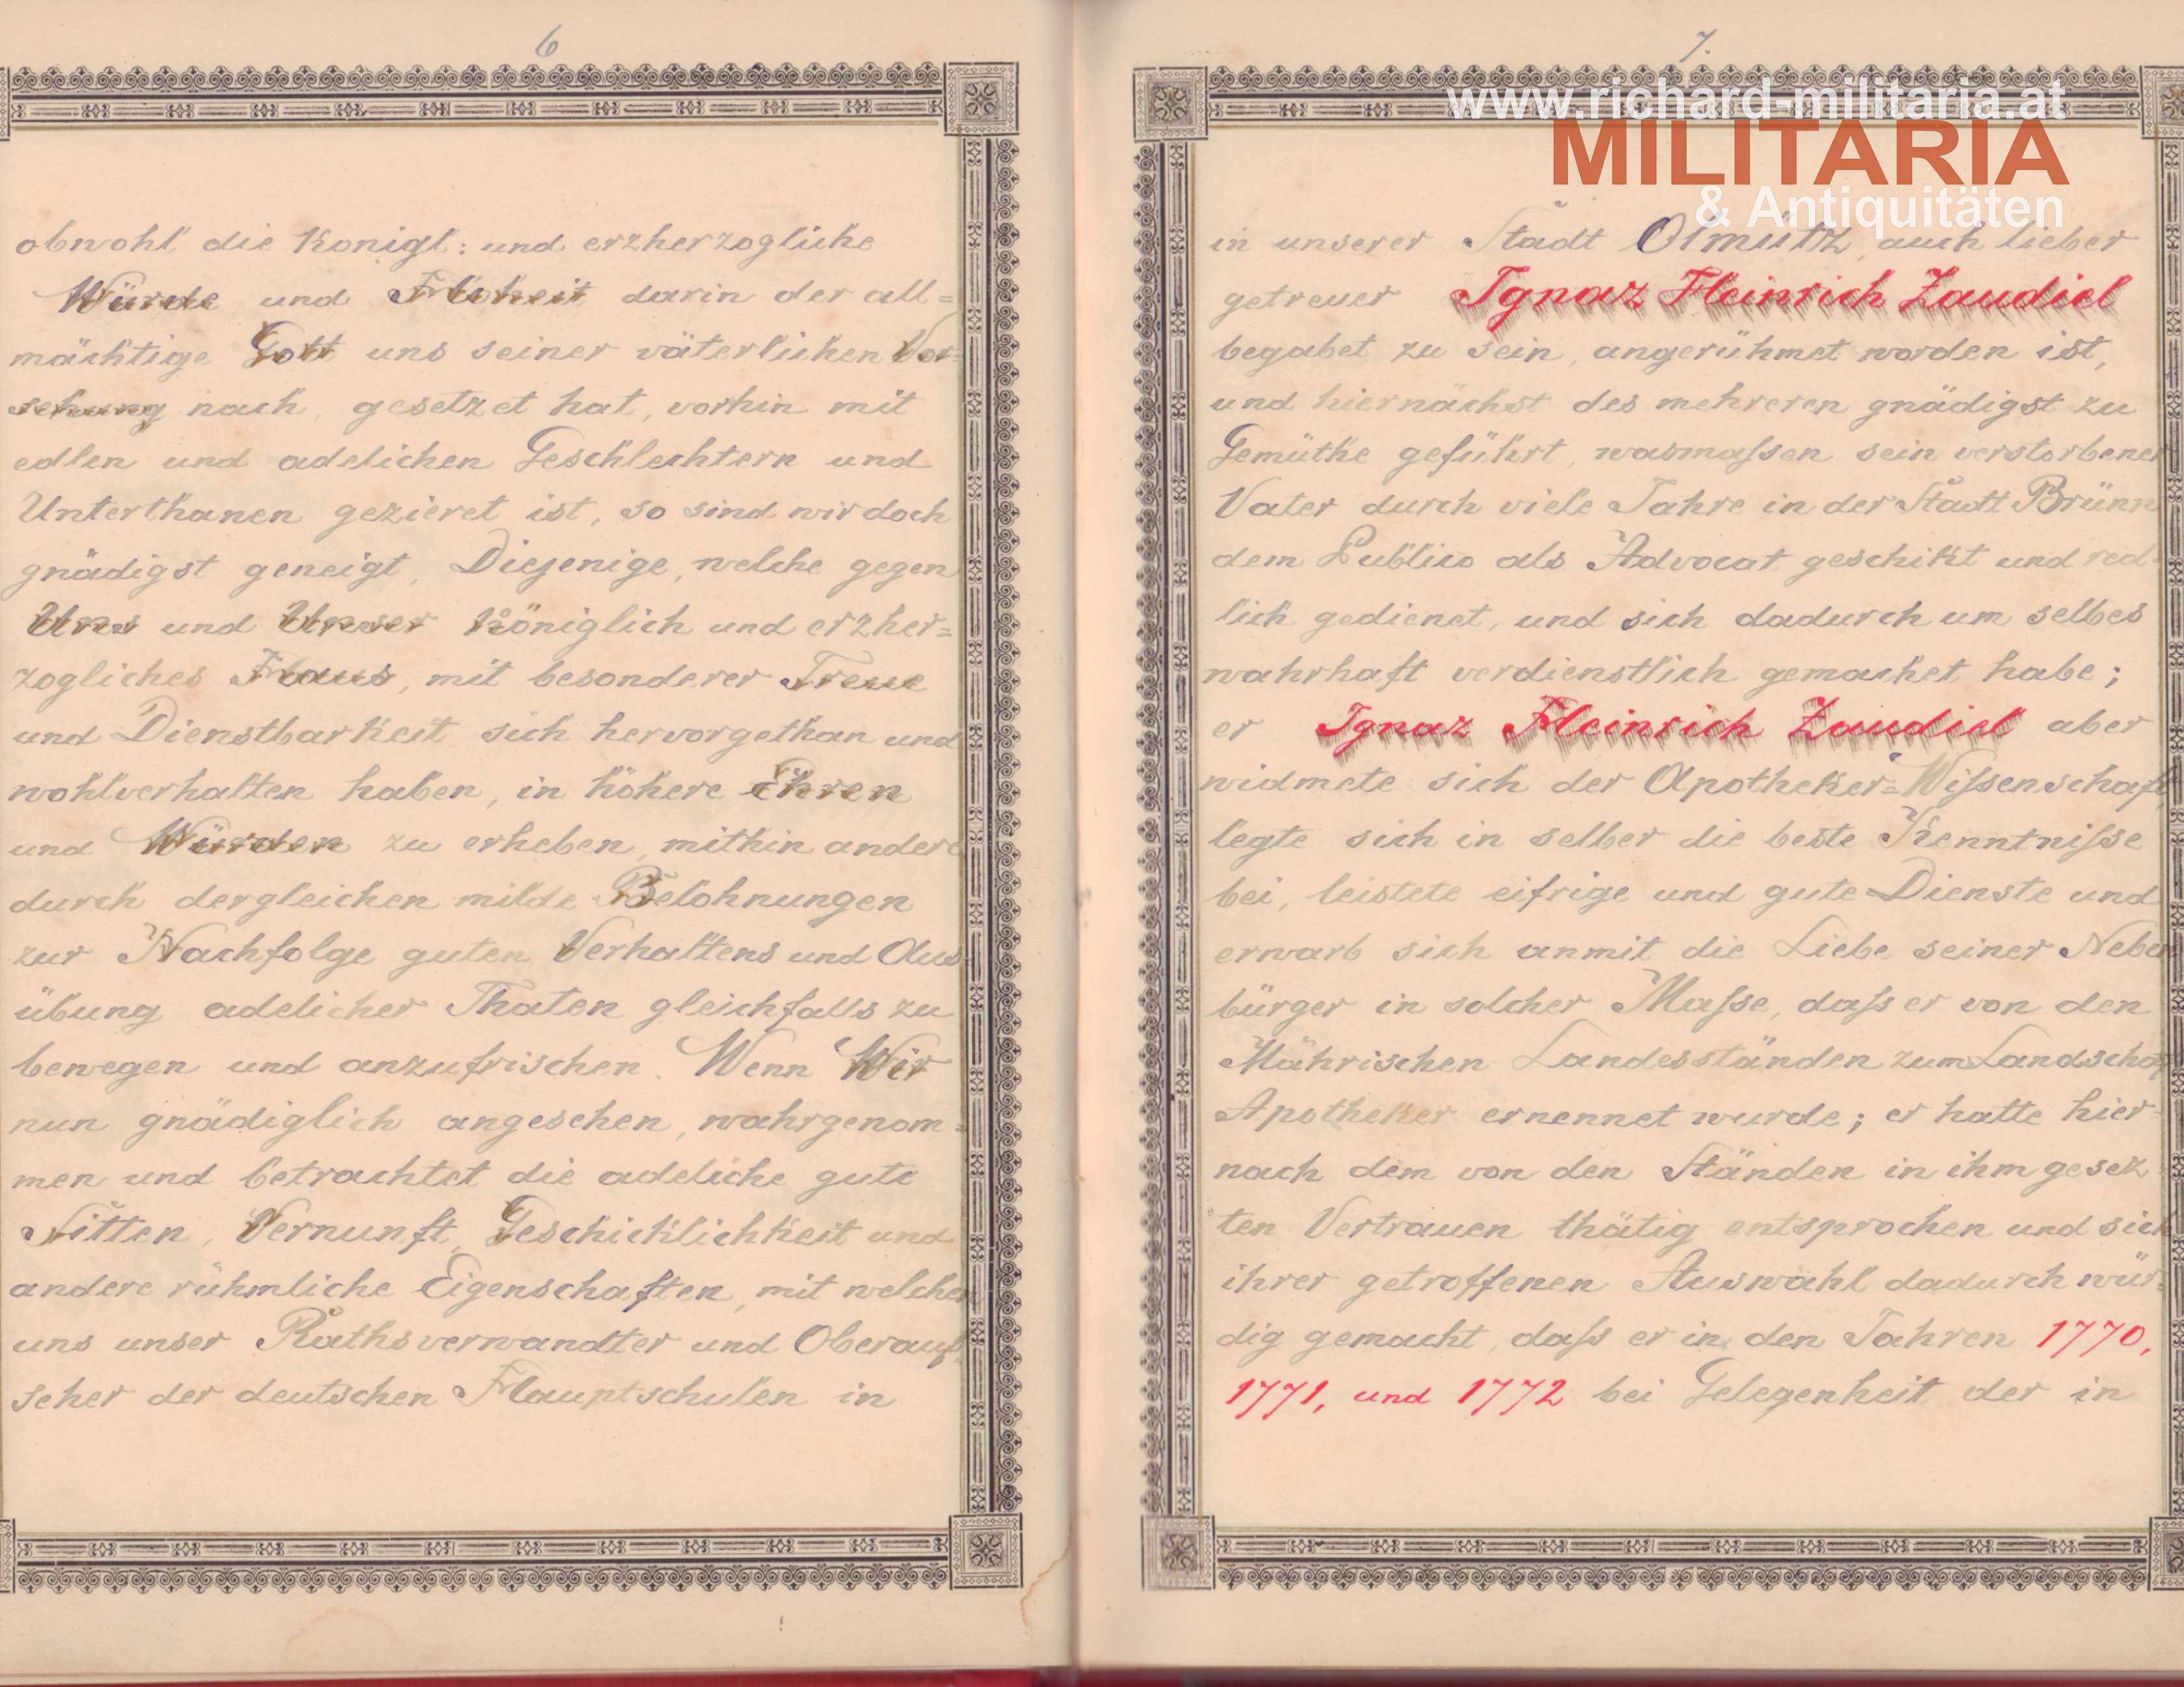 6
obwohl die Königl: und erzherzogliche
Würde und Hoheit darin der all=
mächtige Gott uns seiner väterlichen Vor=
sehung nach, gesetzet hat, vorhin mit
edlen und adelichen Geschlechtern und
Unterthanen gezieret ist, so sind wir doch
gnädigst geneigt, Diejenige, welche gegen
Uns und Unser Königlich und erzher=
zogliches Haus, mit besonderer Treue
und Dienstbarkeit sich hervorgethan und
wohlverhalten haben, in höhere Ehren
und Würden zu erheben, mithin andere
durch dergleichen milde Belohnungen
zur Nachfolge guten Verhaltens und Aus=
übung adelicher Thaten gleichfalls zu
bewegen und anzufrischen. Wenn Wir
nun gnädiglich angesehen, wahrgenom=
men und betrachtet die adeliche gute
Sitten, Vernunft, Geschicklichkeit und
andere rühmliche Eigenschaften, mit welchen
uns unser Rathsverwandter und Oberauf=
seher der deutschen Hauptschulen in
7.
www.richard-militaria.at
MILITARIA
& Antiquitäten
in unserer Stadt Olmütz, auch lieber
getreuer Ignaz Heinrich Zaudiel
begabet zu sein, angerühmet worden ist,
und hiernächst des mehreren gnädigst zu
Gemüthe geführt, wasmaßen sein verstorbener
Vater durch viele Jahre in der Stadt Brünn
dem Publico als Advocat geschikt und red=
lich gedienet, und sich dadurch um selbes
wahrhaft verdienstlich gemachet habe;
er Ignaz Heinrich Zaudiel aber
widmete sich der Apotheker=Wißenschaft,
legte sich in selber die beste Kenntniße
bei, leistete eifrige und gute Dienste und
erwarb sich anmit die Liebe seiner Neben
bürger in solcher Maße, daß er von den
Mährischen Landesständen zum Landschaf
Apotheker ernennet wurde; er hatte hier=
nach dem von den Ständen in ihm gesez=
ten Vertrauen thätig entsprochen und sich
ihrer getroffenen Auswahl dadurch wür=
dig gemacht, daß er in den Jahren 1770,
1771, und 1772 bei Gelegenheit der in